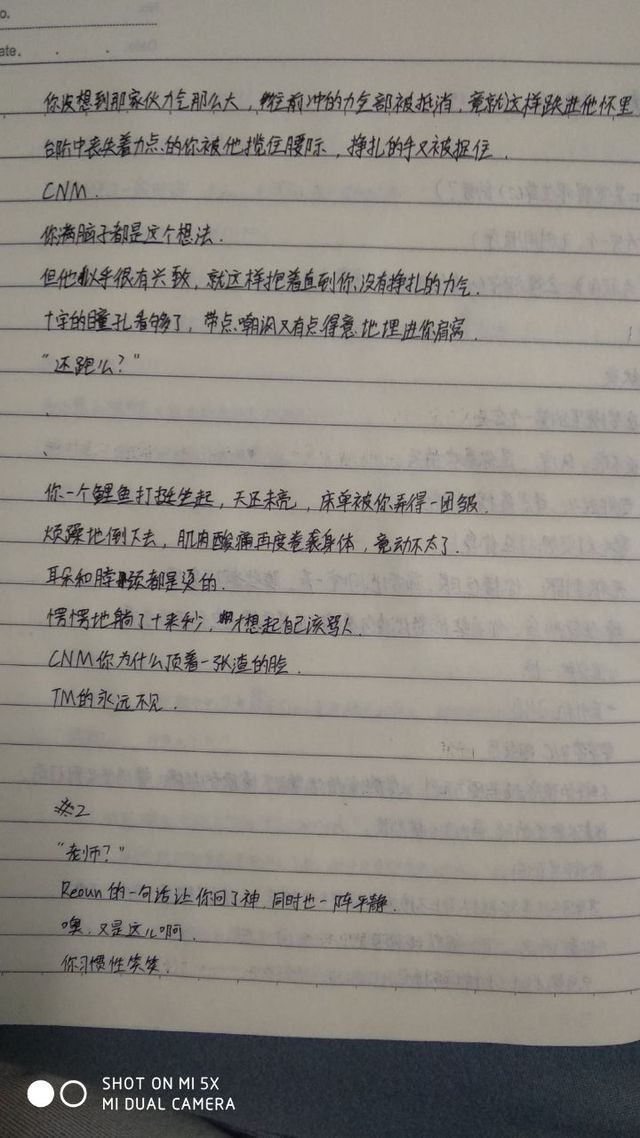 o.
ate.
你没想到那家伙力气那么大，往前冲的力气都被抵消，竟就这样跌进他怀里
台阶中丧失着力点的你被他揽住腰际，挣扎的手又被捉住．
CNM．
你满脑子都是这个想法．
但他似乎很有兴致，就这样抱着直到你没有挣扎的力气．
十字的瞳孔看够了，带点嘲讽又有点得意地埋进你肩窝．
“还跑么？”
你一个鲤鱼打挺坐起，天还未亮，床单被你弄得一团皱．
烦躁地倒下去，肌肉酸痛再度卷袭身体，竟动不太了．
耳朵和脖颈都是烫的．
愣愣地躺了十来秒，才想起自己该骂人．
CNM你为什么顶着一张渣的脸．
TM的永远不见．
※2
“老师？”
的一句话让你回了神．同时也一阵平静．
噢，又是这儿啊．
你习惯性笑笑．
SHOT ON MI 5X
MI DUAL CAMERA